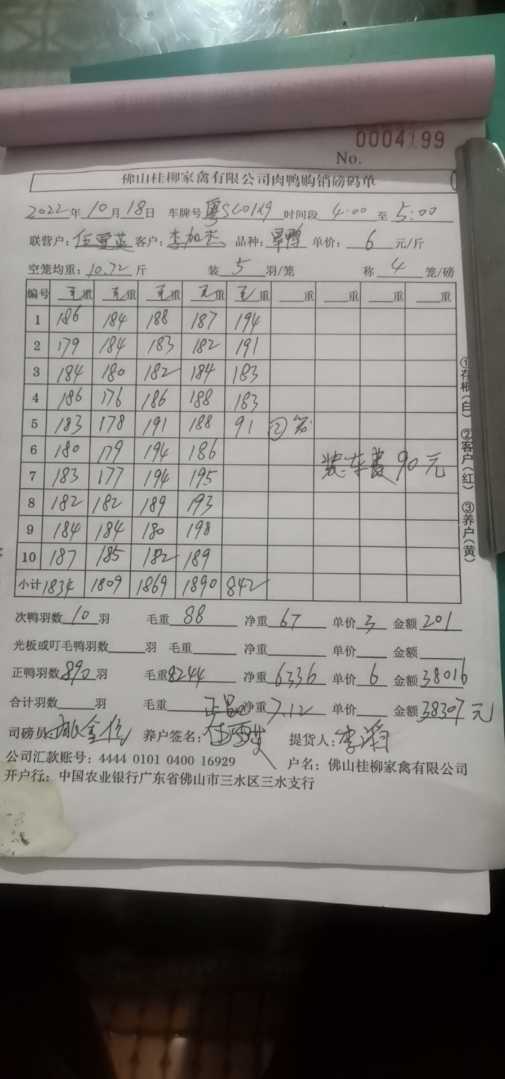 0004199
No.
佛山桂柳家禽有限公司肉鸭购销磅码单
2022年10月18日 车牌号 粤SC01K9 时间段 4:00 至 5:00
联营户: 伍雪英 客户: 李加杰 品种: 单价: 6 元/斤
空笼均重: 10.72 斤 装 5 羽/笼 称 4 笼/磅
编号 毛重 毛重 毛重 毛重 毛重 重 重 重 重
1 186 184 188 187 194
2 179 184 183 182 191
3 184 180 182 184 183
4 186 176 186 188 183
5 183 178 191 188 91 ②笼
6 180 179 194 186
装车费90元
7 183 177 194 195
8 182 182 189 193
9 184 184 180 198
10 187 185 182 189
小计 1834 1809 1869 1890 842
次鸭羽数 10 羽 毛重 88 净重 67 单价 3 金额 201
光板或叮毛鸭羽数 羽 毛重 净重 单价 金额
正鸭羽数 890 羽 毛重 8244 净重 6336 单价 6 金额 38016
合计羽数 羽 毛重 净重 7.12 单价 金额 38307元
司磅员: 养户签名: 伍雪英 提货人: 李滔
公司汇款账号: 4444 0101 0400 16929 户名: 佛山桂柳家禽有限公司
开户行: 中国农业银行广东省佛山市三水区三水支行
①存根(白) ②客户(红) ③养户(黄)